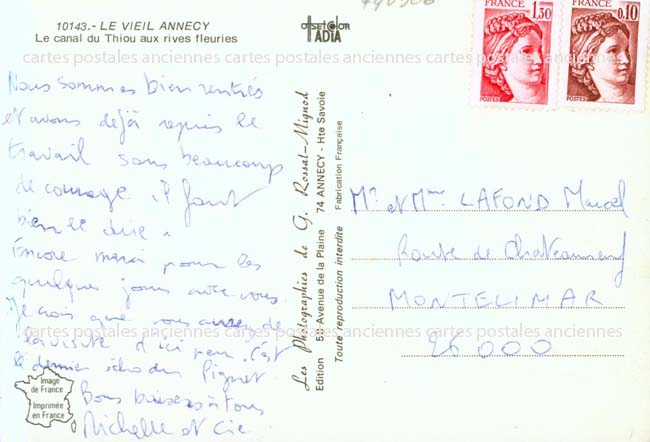 10143.- LE VIEIL ANNECY
Le canal du Thiou aux rives fleuries
offset color
IADIA
FRANCE
1,30
POSTES
FRANCE
0,10
POSTES
cartes postales anciennes cartes postales anciennes
Nous sommes bien rentrés
et avons déjà repris le
travail sans beaucoup
de courage il faut
bien le dire.
Encore merci pour les
quelques jours avec vous.
Je crois que vous aurez de
la visite d'ici peu. C'est
le dernier écho du
Bons baisers à tous
Michelle et Cie
Les Photographies de G. Rossat-Mignod
Edition 58 Avenue de la Plaine 74 ANNECY - Hte Savoie
Toute reproduction interdite Fabrication Française
Mr et Mme LAFOND Marcel
Route de Chateauneuf
MONTELIMAR
26000
cartes postales anciennes cartes postales anciennes
Image
de France
Imprimée
en France